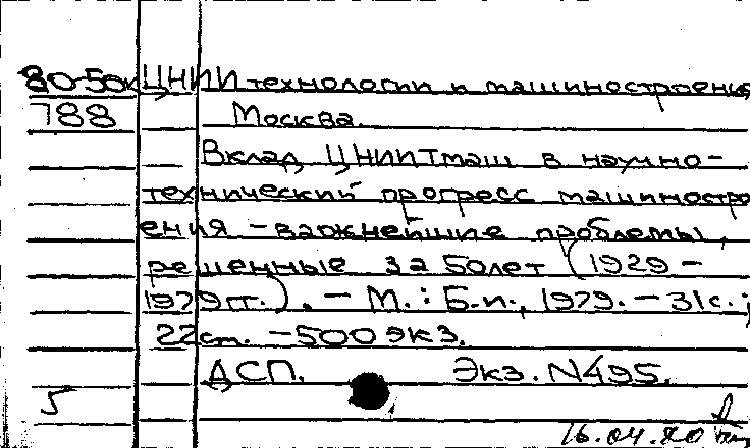 80-50к ЦНИИ технологии и машиностроения
788 Москва.
Вклад ЦНИИТмаш в научно-
технический прогресс машиностро
ения - важнейшие проблемы,
решенные за 50лет (1929 -
1979гг.). - М.: Б.и., 1979. - 31с.;
22см. - 500экз.
ДСП. Экз. N495.
5
16.04.80